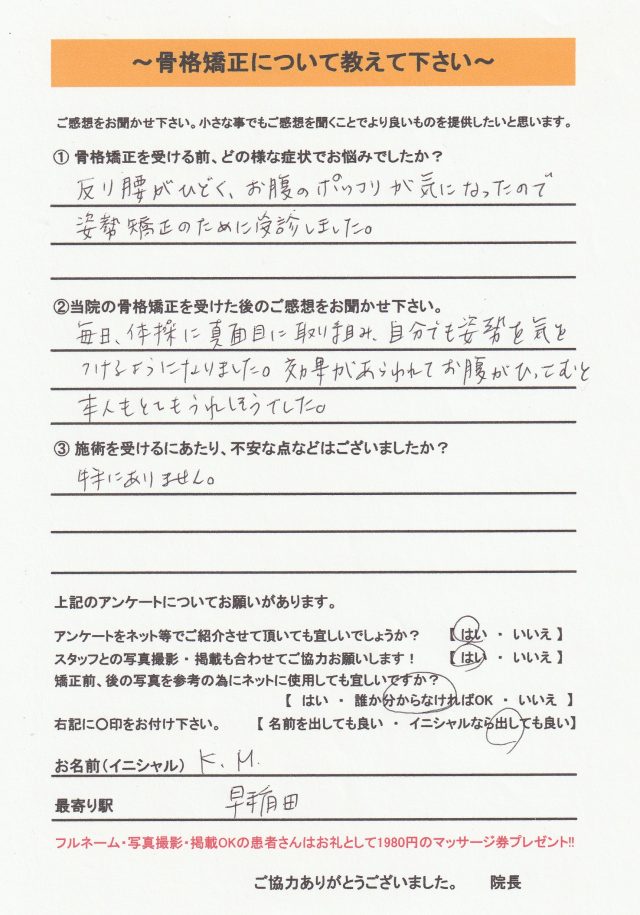 ～骨格矯正について教えて下さい～
ご感想をお聞かせ下さい。小さな事でもご感想を聞くことでより良いものを提供したいと思います。
① 骨格矯正を受ける前、どの様な症状でお悩みでしたか？
反り腰がひどく、お腹のポッコリが気になったので
姿勢矯正のために受診しました。
②当院の骨格矯正を受けた後のご感想をお聞かせ下さい。
毎日、体操に真面目に取り組み、自分でも姿勢を気を
つけるようになりました。効果があらわれてお腹がひっこむと
本人もとてもうれしそうでした。
③ 施術を受けるにあたり、不安な点などはございましたか？
特にありません。
上記のアンケートについてお願いがあります。
アンケートをネット等でご紹介させて頂いても宜しいでしょうか？ 【 はい ・ いいえ 】
スタッフとの写真撮影・掲載も合わせてご協力お願いします！ 【 はい ・ いいえ 】
矯正前、後の写真を参考の為にネットに使用しても宜しいですか？
【 はい ・ 誰か分からなければOK ・ いいえ 】
右記に〇印をお付け下さい。 【 名前を出しても良い ・ イニシャルなら出しても良い】
お名前（イニシャル） K. M.
最寄り駅 早稲田
フルネーム・写真撮影・掲載OKの患者さんはお礼として1980円のマッサージ券プレゼント!!
ご協力ありがとうございました。 院長